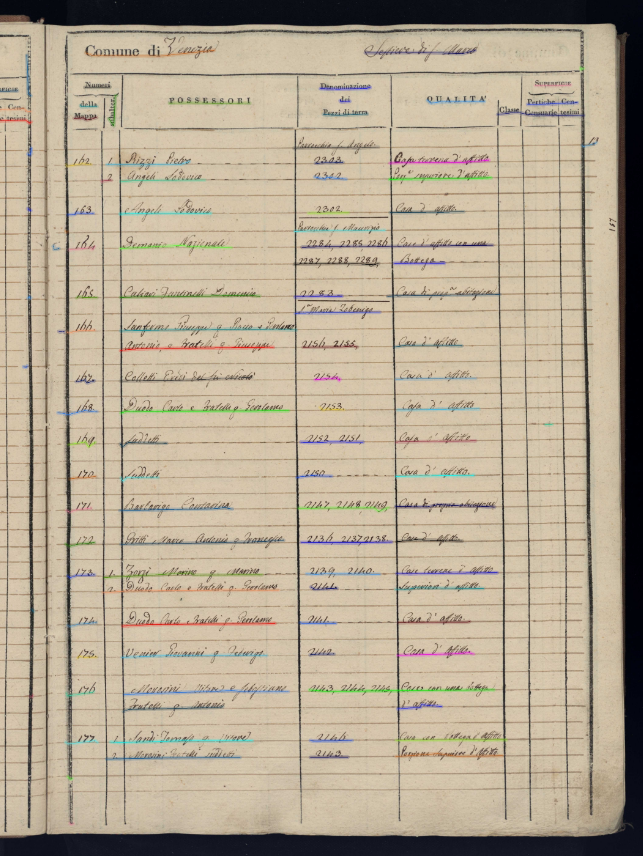 Comune di Venezia Sestiere di S. Marco
Numeri
della
Mappa
subalterni
POSSESSORI
Denominazione
dei
Pezzi di terra
QUALITA'
Classe
Superficie
Pertiche Cen-
Censuarie tesimi
13
Parrochia S.
162 1 Rizzi Pietro 2303 terrena d'affitto
2 Angeli Lodovico 2302 superiore d'affitto
163 Angeli Lodovico 2302 Casa d'affitto
Parrochia S. Maurizio
164 Demanio Nazionale 2284, 2285, 2286 Case d'affitto con una
2287, 2288, 2289, Bottega
165 Domenico 2283 Casa di prop.a abitazione
S.a Maria Zobenigo
166 Giuseppe q. e Girolamo
Antonio, e Fratelli q. Giuseppe 2156, 2155, Casa d'affitto
167 Colletti 2154 Casa d'affitto.
168 Duodo Carlo e Fratelli q. Girolamo 2153 Casa d'affitto
169 Suddetti 2152, 2151 Casa d'affitto
170 Suddetti 2150 Casa d'affitto.
171 Barbarigo Contarina 2147, 2148, 2149 Casa di propria abitazione
172 Gritti Antonio q. 2136, 2137, 2138 Casa d'affitto
173 1 Zorzi Marino q. Marino 2139, 2140 Casa terrena d'affitto
2 Duodo Carlo e Fratelli q. Girolamo 2141 Superiore d'affitto
174 Duodo Carlo e Fratelli q. Girolamo 2141 Casa d'affitto
175 Venier Giovanni q. 2142 Casa d'affitto.
176 Morosini e 2143, 2144, 2145, Casa con una bottega
Fratelli q. Antonio d'affitto
177 1 Sandi Tomaso q. 2146 Casa con bottega d'affitto
2 Morosini Fratelli suddetti 2143 Porzione Superiore d'affitto